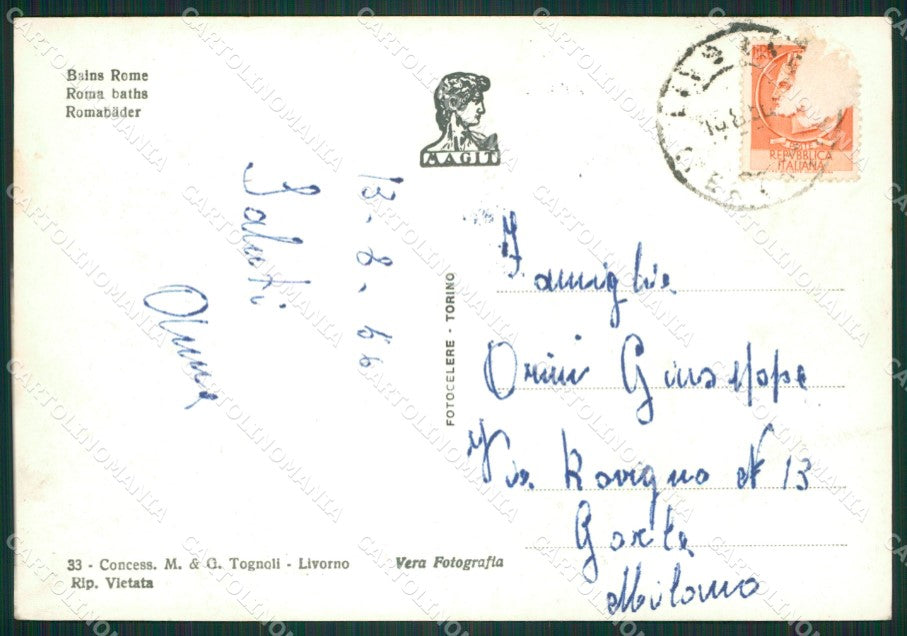 Bains Rome
Roma baths
Romabäder
MAGIT
POSTE
REPVBBLICA
ITALIANA
13-8-66
Saluti
Anna
FOTOCELERE - TORINO
Famiglia
Orini Giuseppe
Via Rovigno N 13
Milano
33 - Concess. M. & G. Tognoli - Livorno
Rip. Vietata
Vera Fotografia
CARTOLINOMANIA